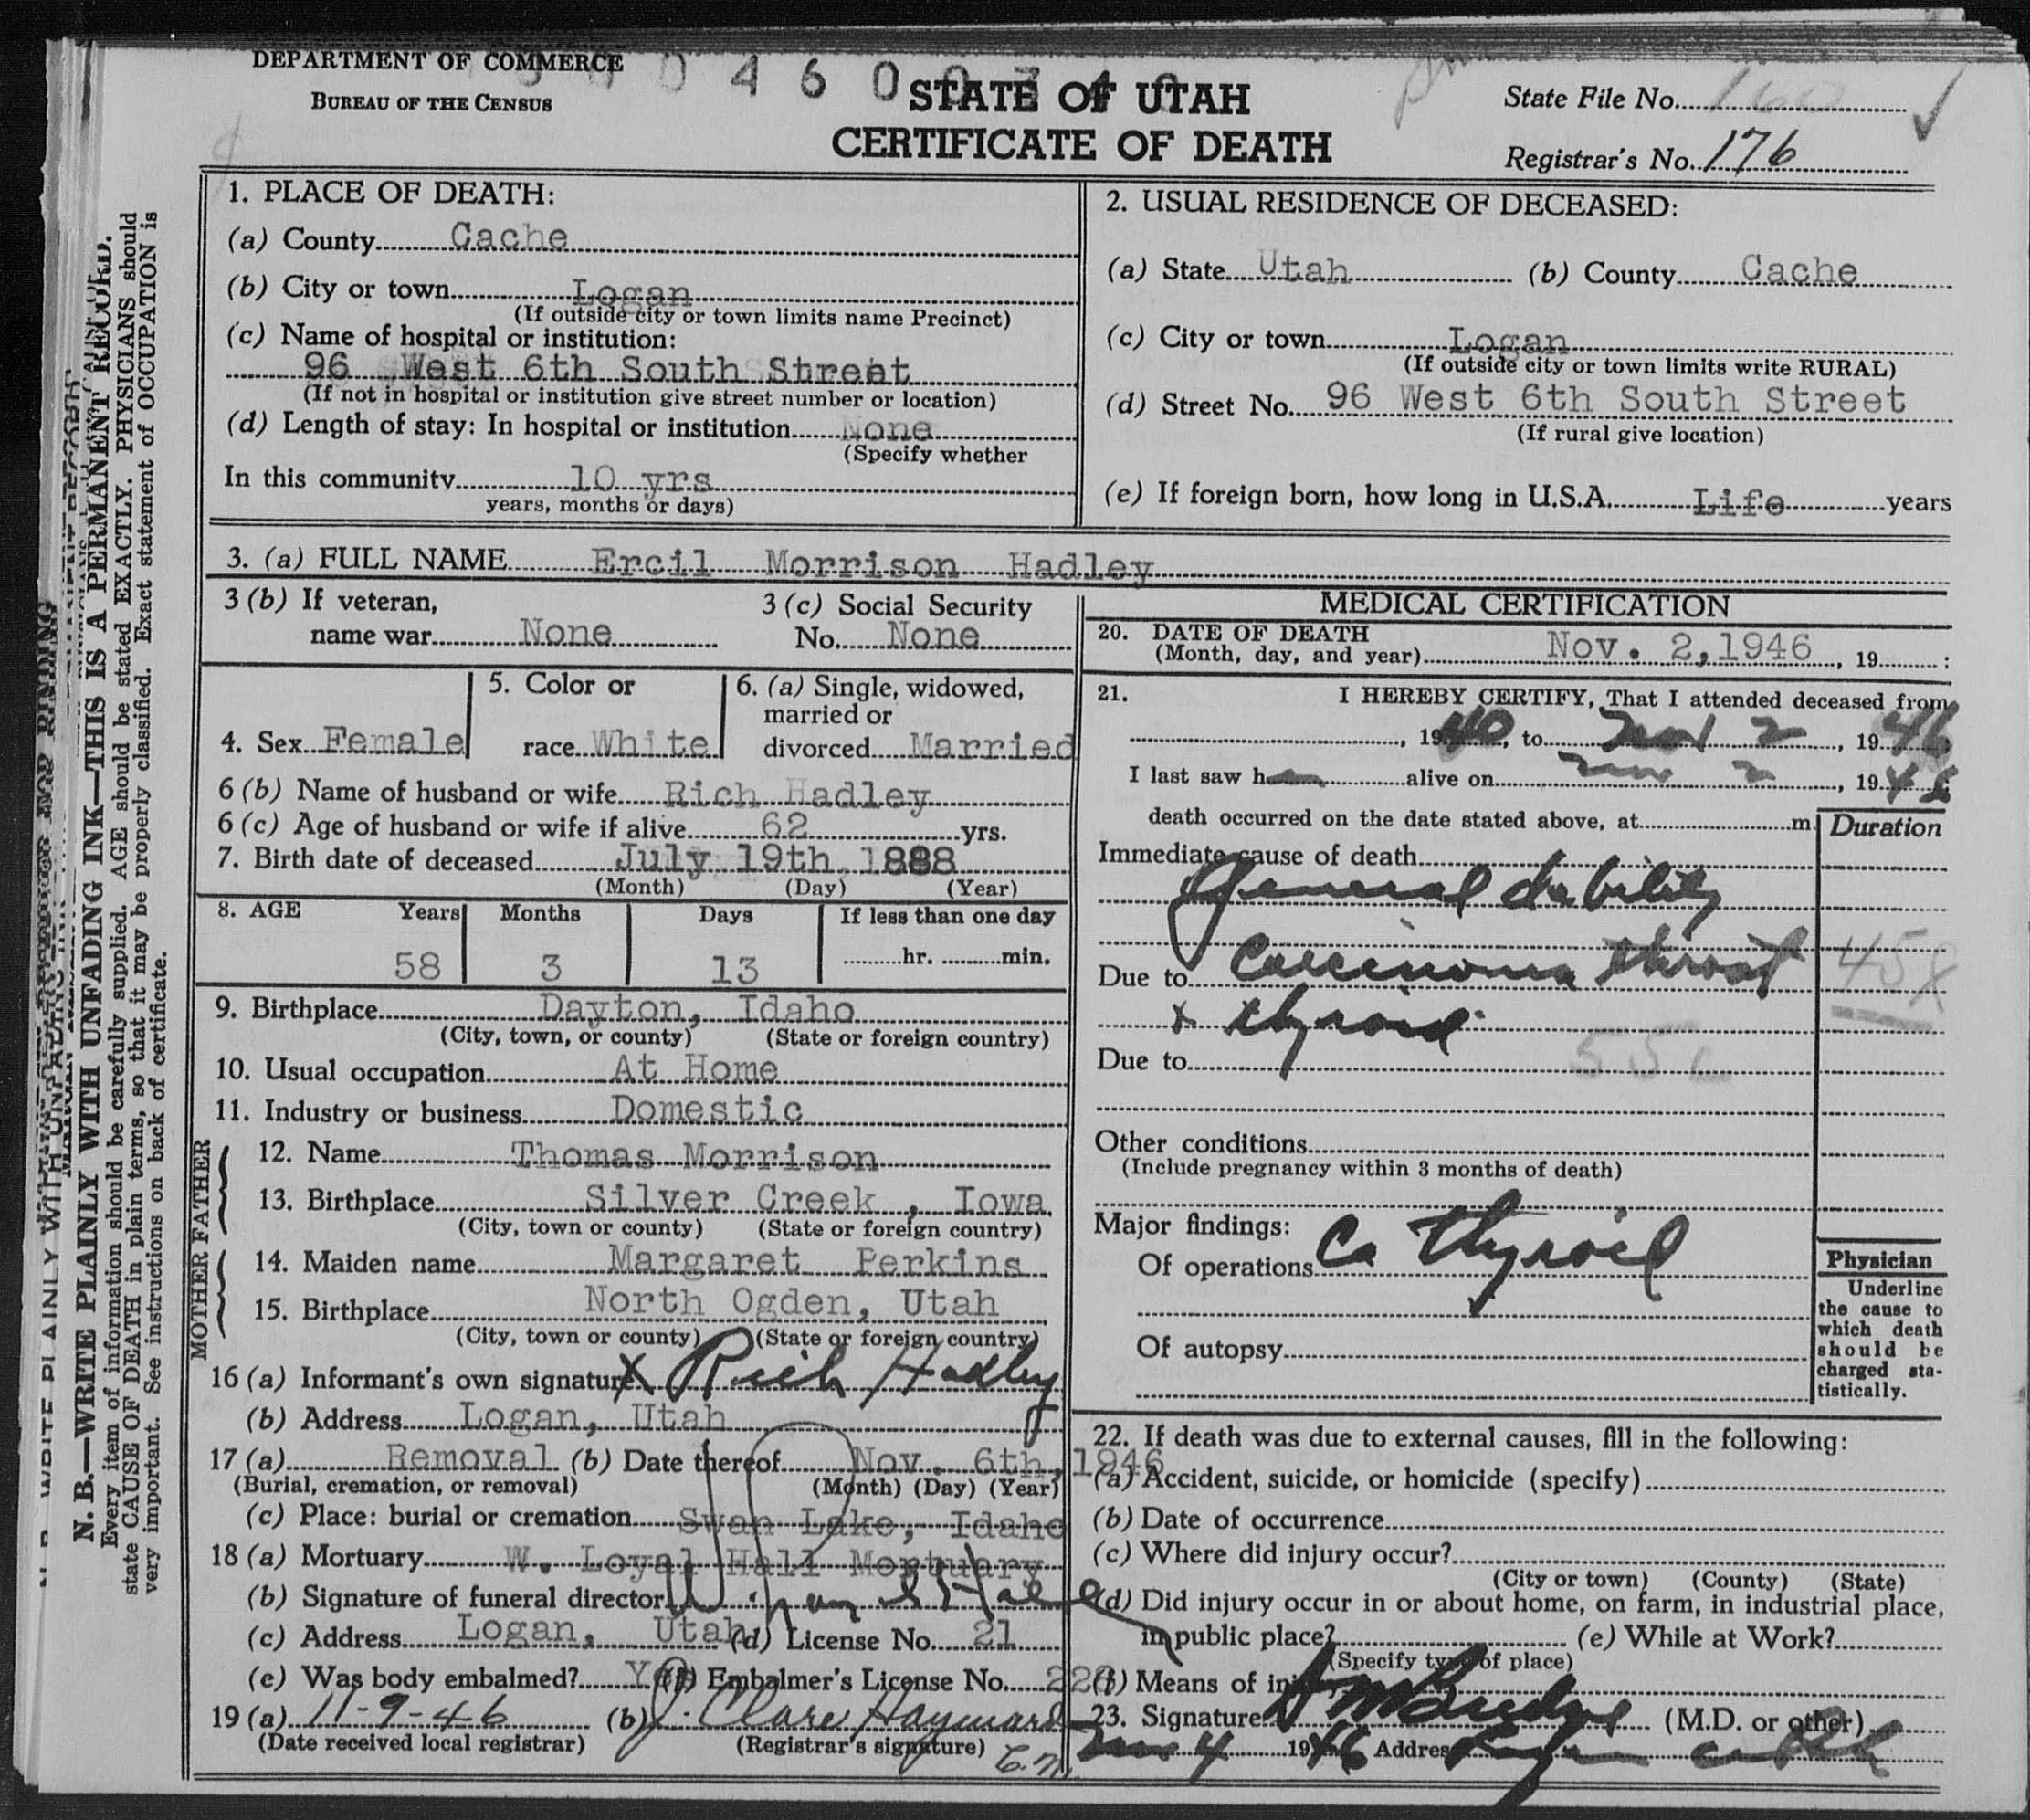 DEPARTMENT OF COMMERCE
BUREAU OF THE CENSUS
STATE OF UTAH
CERTIFICATE OF DEATH
State File No. 160
Registrar's No. 176
1. PLACE OF DEATH:
(a) County Cache
(b) City or town Logan
(If outside city or town limits name Precinct)
(c) Name of hospital or institution:
96 West 6th South Street
(If not in hospital or institution give street number or location)
(d) Length of stay: In hospital or institution None
(Specify whether
In this community 10 yrs
years, months or days)
2. USUAL RESIDENCE OF DECEASED:
(a) State Utah (b) County Cache
(c) City or town Logan
(If outside city or town limits write RURAL)
(d) Street No. 96 West 6th South Street
(If rural give location)
(e) If foreign born, how long in U.S.A. Life years
3. (a) FULL NAME Ercil Morrison Hadley
3 (b) If veteran,
name war None
3 (c) Social Security
No. None
4. Sex Female
5. Color or
race White
6. (a) Single, widowed,
married or
divorced Married
6 (b) Name of husband or wife Rich Hadley
6 (c) Age of husband or wife if alive 62 yrs.
7. Birth date of deceased July 19th, 1888
(Month) (Day) (Year)
8. AGE Years Months Days If less than one day
58 3 13 hr. min.
9. Birthplace Dayton, Idaho
(City, town, or county) (State or foreign country)
10. Usual occupation At Home
11. Industry or business Domestic
FATHER
12. Name Thomas Morrison
13. Birthplace Silver Creek, Iowa.
(City, town or county) (State or foreign country)
MOTHER
14. Maiden name Margaret Perkins
15. Birthplace North Ogden, Utah
(City, town or county) (State or foreign country)
16 (a) Informant's own signature X Rich Hadley
(b) Address Logan, Utah
17 (a) Removal (b) Date thereof Nov. 6th, 1946
(Burial, cremation, or removal) (Month) (Day) (Year)
(c) Place: burial or cremation Swan Lake, Idaho
18 (a) Mortuary W. Loyal Hall Mortuary
(b) Signature of funeral director W. Loyal Hall
(c) Address Logan, Utah (d) License No. 21
(e) Was body embalmed? Yes (f) Embalmer's License No.
19 (a) 11-9-46 (b) J. Clare Hayward
(Date received local registrar) (Registrar's signature)
MEDICAL CERTIFICATION
20. DATE OF DEATH
(Month, day, and year) Nov. 2, 1946, 19 :
21. I HEREBY CERTIFY, That I attended deceased from
, 1940, to Nov 2, 1946
I last saw her alive on Nov 2, 1946
death occurred on the date stated above, at m.
Duration
Immediate cause of death
General debility
Due to Carcinoma throat
+ thyroid
45x
Due to
55c
Other conditions
(Include pregnancy within 3 months of death)
Major findings:
Of operations Ca Thyroid
Of autopsy
Physician
Underline
the cause to
which death
should be
charged sta-
tistically.
22. If death was due to external causes, fill in the following:
(a) Accident, suicide, or homicide (specify)
(b) Date of occurrence
(c) Where did injury occur?
(City or town) (County) (State)
(d) Did injury occur in or about home, on farm, in industrial place,
in public place? (e) While at Work?
(Specify type of place)
(f) Means of injury
23. Signature (M.D. or other)
Nov 4 1946 Address Logan Utah
N. B.—WRITE PLAINLY WITH UNFADING INK—THIS IS A PERMANENT RECORD.
Every item of information should be carefully supplied. AGE should be stated EXACTLY. PHYSICIANS should
state CAUSE OF DEATH in plain terms, so that it may be properly classified. Exact statement of OCCUPATION is
very important. See instructions on back of certificate.